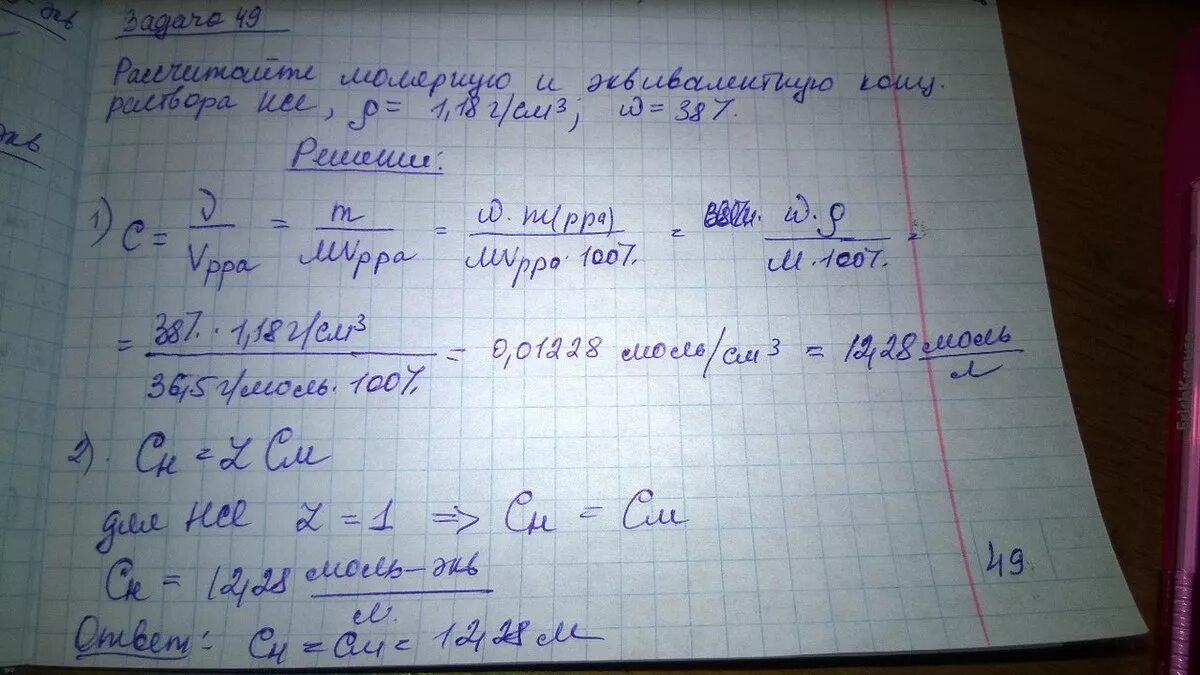 Задача 49
Рассчитайте молярную и эквивалентную конц.
раствора HCl, ρ = 1,18 г/см³; ω = 38%.
Решение:
1) C = ν/Vрра = m/MVрра = ω·m(рра)/MVрра·100% = ω·ρ/M·100% =
= 38%·1,18 г/см³/36,5 г/моль·100% = 0,01228 моль/см³ = 12,28 моль/л
2). Cн = Z Cм
для HCl Z = 1 => Cн = Cм
Cн = 12,28 моль-экв/л.
49
Ответ: Cн = Cм = 12,28 М
экв
экв
ErichKrause